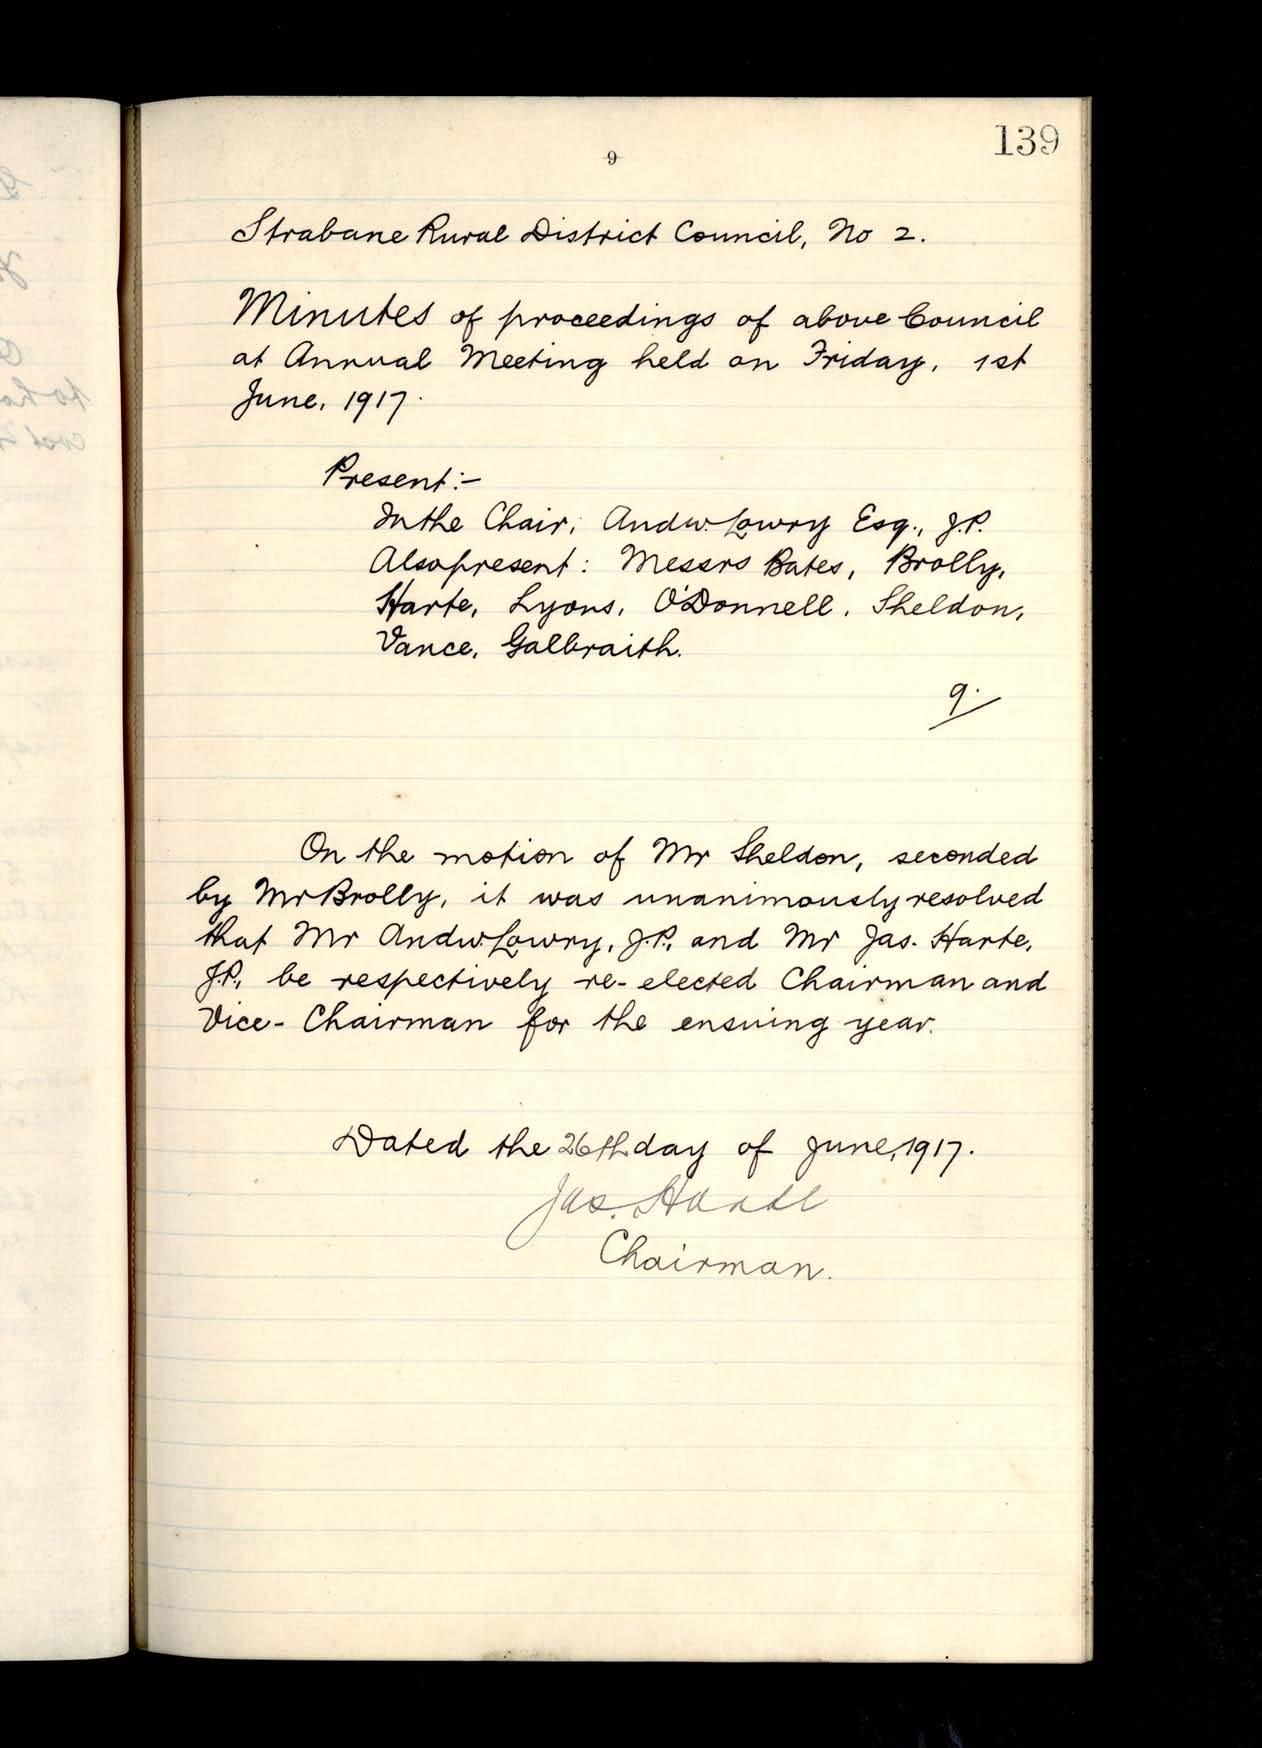 139
9
Strabane Rural District Council, No 2.
Minutes of proceedings of above Council
at Annual Meeting held on Friday, 1st
June, 1917.
Present:-
In the Chair, Andw. Lowry Esq., J.P.
Also present: Messrs Bates, Brolly,
Harte, Lyons, O'Donnell, Sheldon,
Vance, Galbraith.
9.
On the motion of Mr Sheldon, seconded
by Mr Brolly, it was unanimously resolved
that Mr Andw. Lowry, J.P., and Mr Jas. Harte,
J.P., be respectively re-elected Chairman and
Vice-Chairman for the ensuing year.
Dated the 26th day of June, 1917.
Jas. Harte
Chairman.